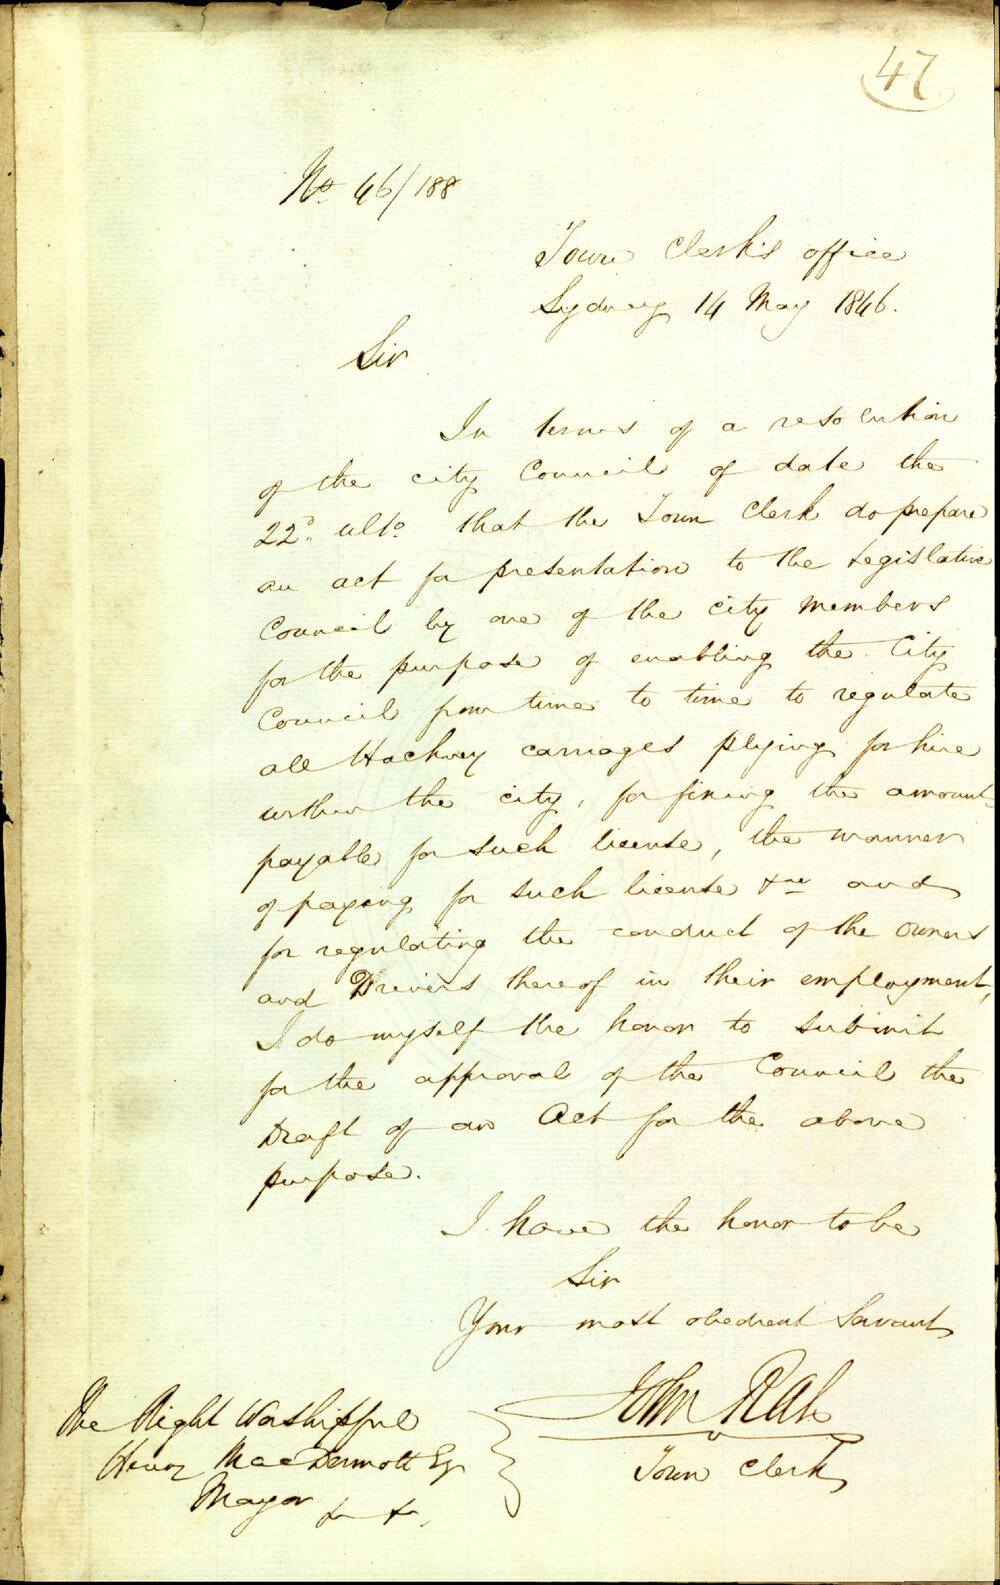 47
No. 46/188
Town Clerk's office
Sydney 14 May 1846.
Sir
In terms of a resolution
of the city Council of date the
22d. ulto. that the Town Clerk do prepare
an act for presentation to the Legislative
Council by one of the city Members
for the purpose of enabling the City
Council from time to time to regulate
all Hackney carriages plying for hire
within the city, for fixing the amount
payable for such license, the manner
of paying for such license &ca and
for regulating the conduct of the owners
and Drivers thereof in their employment,
I do myself the honor to submit
for the approval of the Council the
Draft of an Act for the above
purpose.
I have the honor to be
Sir
Your most obedient Servant
John Rae
Town Clerk
The Right Worshipful
Henry MacDermott Esqr
Mayor &c &c.